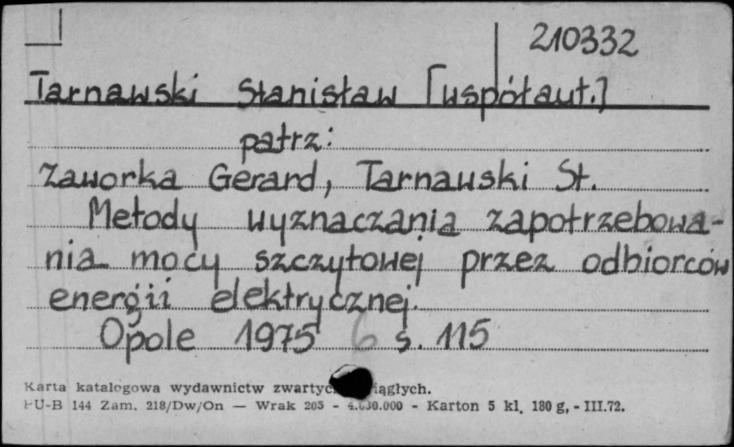 210332
Tarnawski Stanisław [współaut.]
patrz:
Zaworka Gerard, Tarnawski St.
Metody wyznaczania zapotrzebowa-
nia mocy szczytowej przez odbiorców
energii elektrycznej.
Opole 1975 6 s. 115
Karta katalogowa wydawnictw ciągłych.
PU-B 144 Zam. 218/Dw/On — Wrak 205 - - Karton 5 kl. 180 g, - III.72.